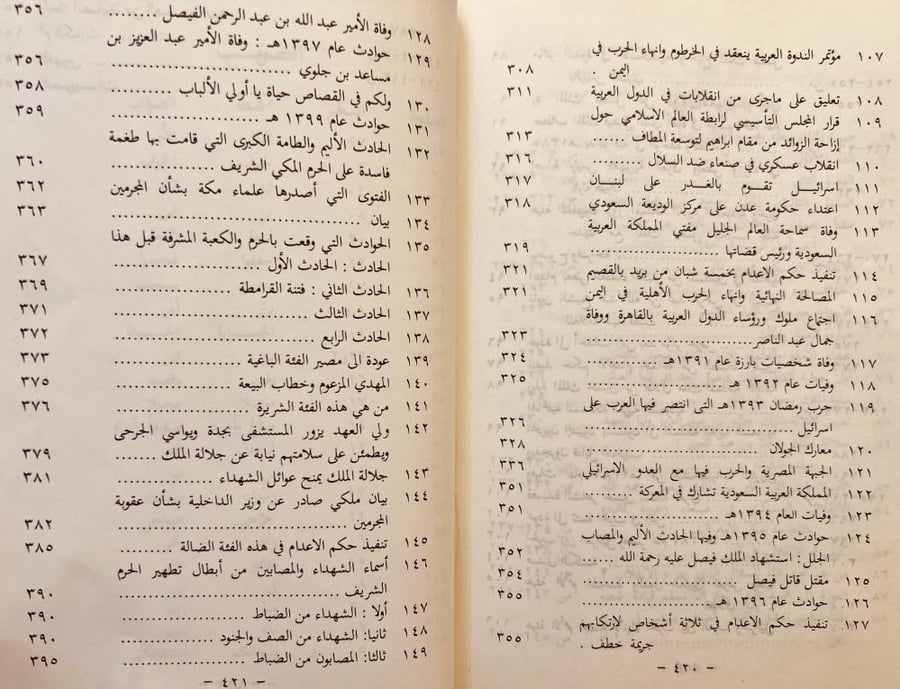 ١٠٧ مؤتمر الندوة العربية ينعقد في الخرطوم وانهاء الحرب في
اليمن . ٣٠٨
١٠٨ تعليق على ماجرى من انقلابات في الدول العربية ٣١١
١٠٩ قرار المجلس التأسيسي لرابطة العالم الاسلامي حول
إزاحة الزوائد من مقام ابراهيم لتوسعة المطاف ...... ٣١٣
١١٠ انقلاب عسكري في صنعاء ضد السلال ......... ٣١٦
١١١ اسرائيل تقوم بالغدر على لبنان ٣١٧
١١٢ اعتداء حكومة عدن على مركز الوديعة السعودي ٣١٨
١١٣ وفاة سماحة العالم الجليل مفتي المملكة العربية
السعودية ورئيس قضاتها .......................... ٣١٩
١١٤ تنفيذ حكم الاعدام بخمسة شبان من بريد بالقصيم ٣٢١
١١٥ المصالحة النهائية وانهاء الحرب الأهلية في اليمن ٣٢١
١١٦ اجتماع ملوك ورؤساء الدول العربية بالقاهرة ووفاة
جمال عبد الناصر .......................... ٣٢٣
١١٧ وفاة شخصيات بارزة عام ١٣٩١هـ .......... ٣٢٤
١١٨ وفيات عام ١٣٩٢ هـ .................... ٣٢٥
١١٩ حرب رمضان ١٣٩٣هـ التى انتصر فيها العرب على
اسرائيل .............................. ٣٢٦
١٢٠ معارك الجولان ........................ ٣٢٨
١٢١ الجبهة المصرية والحرب فيها مع العدو الاسرائيلي ٣٣٦
١٢٢ المملكة العربية السعودية تشارك في المعركة ......... ٣٥١
١٢٣ وفيات العام ١٣٩٤هـ .................... ٣٥١
١٢٤ حوادث عام ١٣٩٥هـ وفيها الحادث الأليم والمصاب
الجلل : استشهاد الملك فيصل عليه رحمة الله ...... ٣٥٢
١٢٥ مقتل قاتل فيصل ........................ ٣٥٤
١٢٦ حوادث عام ١٣٩٦هـ .................... ٣٥٥
١٢٧ تنفيذ حكم الاعدام في ثلاثة أشخاص لإرتكابهم
جريمة خطف . ٣٥٥
— ٤٢٠ —
١٢٨ وفاة الأمير عبد الله بن عبد الرحمن الفيصل ........ ٣٥٦
١٢٩ حوادث عام ١٣٩٧هـ : وفاة الأمير عبد العزيز بن
مساعد بن جلوي .......................... ٣٥٦
١٣٠ ولكم في القصاص حياة يا أولي الألباب .......... ٣٥٨
١٣١ حوادث عام ١٣٩٩هـ .................... ٣٥٩
١٣٢ الحادث الأليم والطامة الكبرى التي قامت بها طغمة
فاسدة على الحرم المكي الشريف .............. ٣٦٠
١٣٣ الفتوى التي أصدرها علماء مكة بشأن المجرمين ٣٦٢
١٣٤ بيان .................................. ٣٦٣
١٣٥ الحوادث التي وقعت بالحرم والكعبة المشرفة قبل هذا
الحادث : الحادث الأول .................... ٣٦٧
١٣٦ الحادث الثاني : فتنة القرامطة .............. ٣٦٩
١٣٧ الحادث الثالث .......................... ٣٧١
١٣٨ الحادث الرابع .......................... ٣٧٢
١٣٩ عودة الى مصير الفئة الباغية ................ ٣٧٣
١٤٠ المهدي المزعوم وخطاب البيعة ................ ٣٧٥
١٤١ من هي هذه الفئة الشريرة .................. ٣٧٦
١٤٢ ولي العهد يزور المستشفى بجدة ويواسي الجرحى
ويطمئن على سلامتهم نيابة عن جلالة الملك ....... ٣٧٩
١٤٣ جلالة الملك يمنح عوائل الشهداء ............ ٣٨١
١٤٤ بيان ملكي صادر عن وزير الداخلية بشأن عقوبة
المجرمين .............................. ٣٨٢
١٤٥ تنفيذ حكم الاعدام في هذه الفئة الضالة .......... ٣٨٥
١٤٦ أسماء الشهداء والمصابين من أبطال تطهير الحرم
الشريف .............................. ٣٩٠
١٤٧ أولا : الشهداء من الضباط .................. ٣٩٠
١٤٨ ثانيا: الشهداء من الصف والجنود ............ ٣٩٠
١٤٩ ثالثا: المصابون من الضباط .................. ٣٩٥
— ٤٢١ —